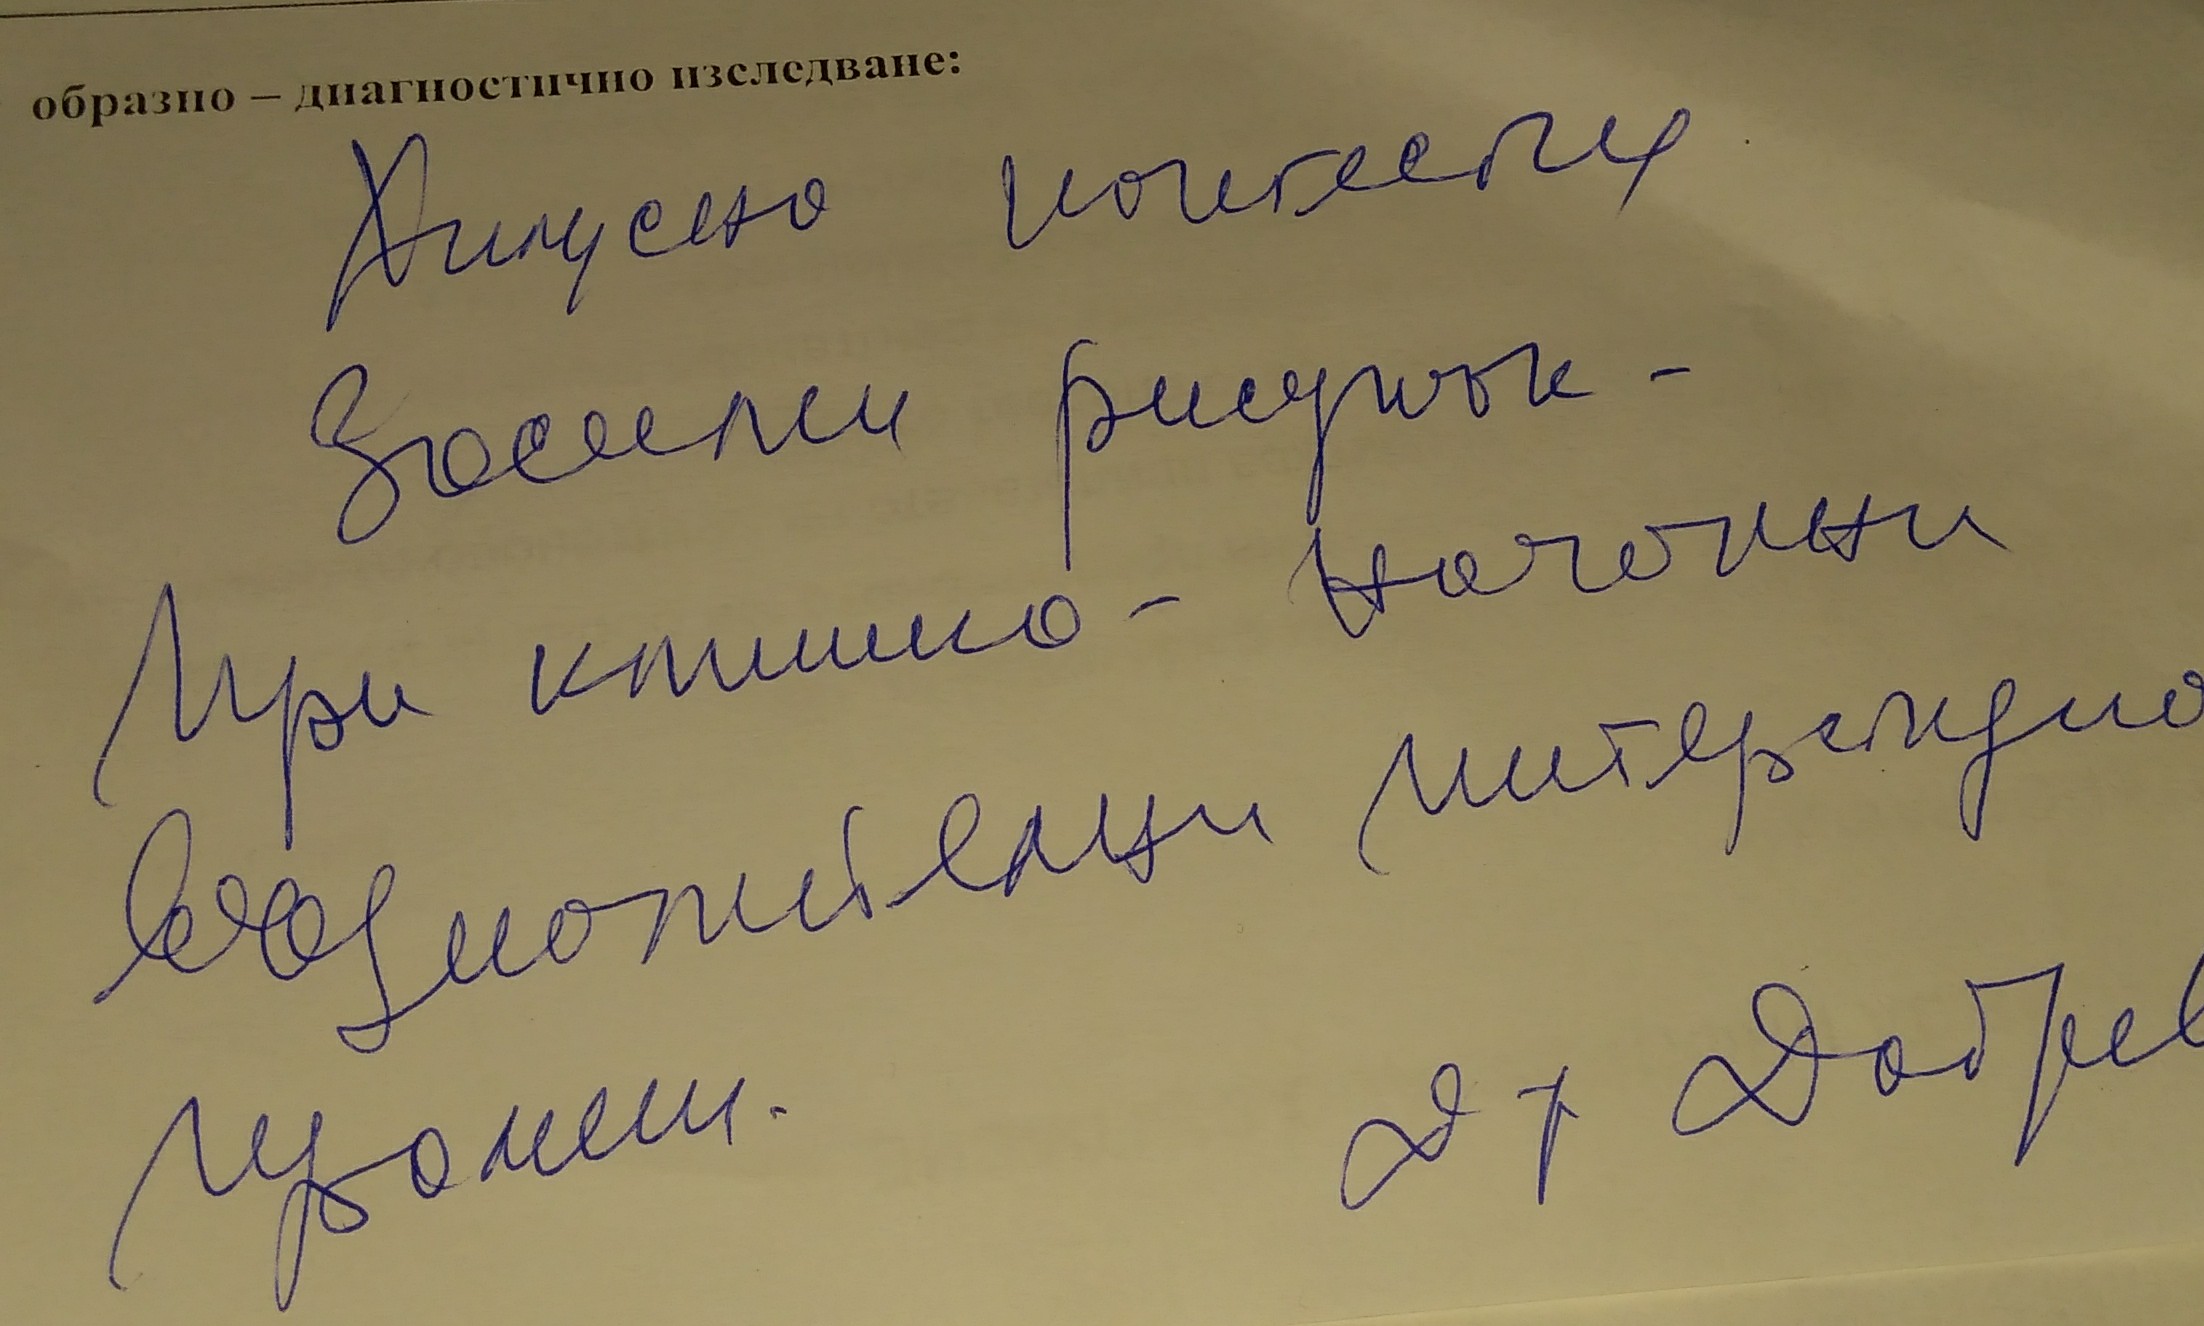 образно – диагностично изследване:
Хилусно контести
Засилен рисунък -
При клинико - начални
възпалителни интерстицио
промени.
Д-р Добрев